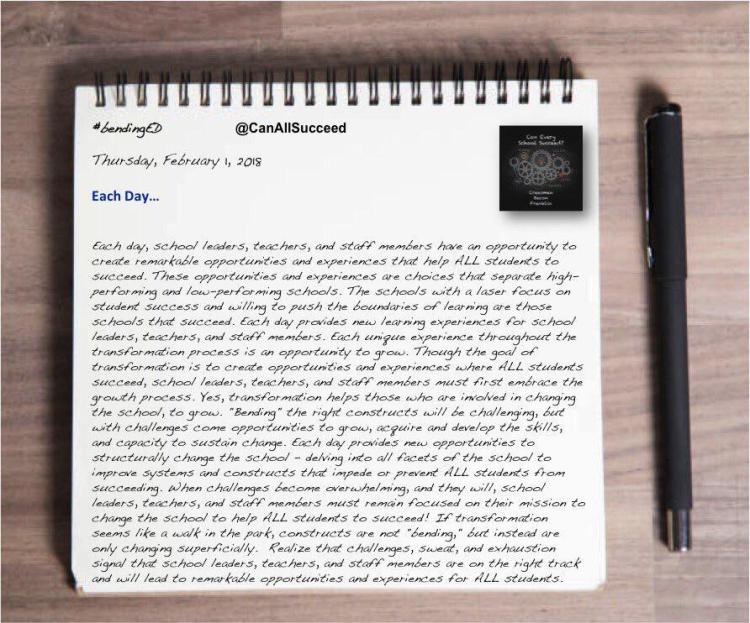 #bendingED @CanAllSucceed
Can Every
School Succeed?
Thursday, February 1, 2018
Cheesman
Bacon
Franklin
Each Day...
Each day, school leaders, teachers, and staff members have an opportunity to
create remarkable opportunities and experiences that help ALL students to
succeed. These opportunities and experiences are choices that separate high-
performing and low-performing schools. The schools with a laser focus on
student success and willing to push the boundaries of learning are those
schools that succeed. Each day provides new learning experiences for school
leaders, teachers, and staff members. Each unique experience throughout the
transformation process is an opportunity to grow. Though the goal of
transformation is to create opportunities and experiences where ALL students
succeed, school leaders, teachers, and staff members must first embrace the
growth process. Yes, transformation helps those who are involved in changing
the school, to grow. "Bending" the right constructs will be challenging, but
with challenges come opportunities to grow, acquire and develop the skills,
and capacity to sustain change. Each day provides new opportunities to
structurally change the school - delving into all facets of the school to
improve systems and constructs that impede or prevent ALL students from
succeeding. When challenges become overwhelming, and they will, school
leaders, teachers, and staff members must remain focused on their mission to
change the school to help ALL students to succeed! If transformation
seems like a walk in the park, constructs are not "bending," but instead are
only changing superficially. Realize that challenges, sweat, and exhaustion
signal that school leaders, teachers, and staff members are on the right track
and will lead to remarkable opportunities and experiences for ALL students.